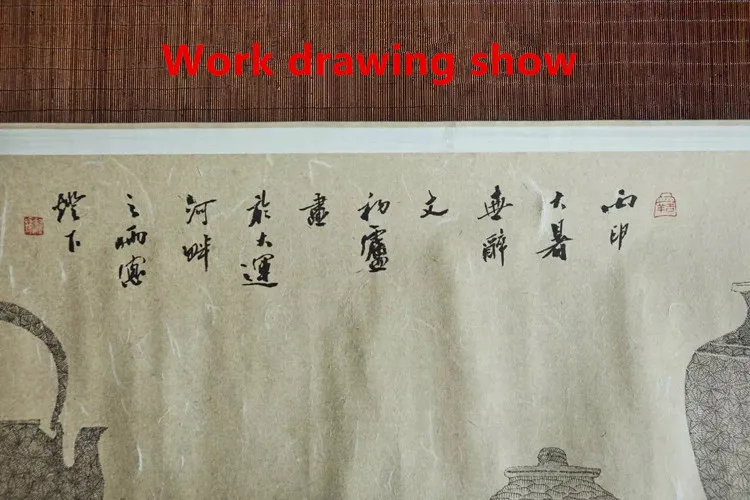 Work drawing show
丙申
大暑
無辭
文
初廬
畫
於大運
河畔
之雨窗
燈下